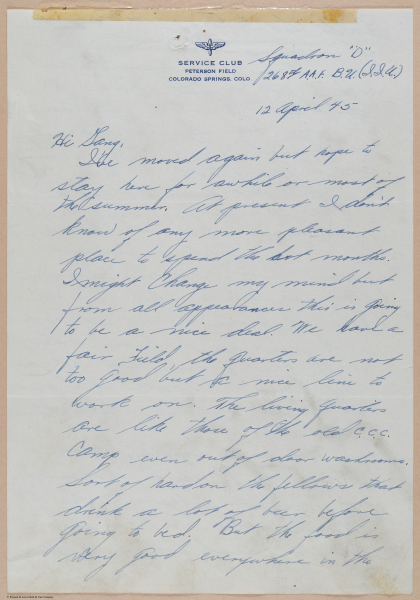 SERVICE CLUB
PETERSON FIELD
COLORADO SPRINGS, COLO.
Squadron "D"
268th A.A.F. B.U. (I.I.U.)
12 April 45
Hi Gang,
I've moved again but hope to
stay here for awhile or most of
the summer. At present I don't
know of any more pleasant
place to spend the hot months.
I might change my mind but
from all appearances this is going
to be a nice deal. We have a
fair Field, the quarters are not
too good but a nice line to
work on. The living quarters
are like those of the old C.C.C.
Camp even out of door washrooms.
Sort of hard on the fellows that
drink a lot of beer before
going to bed. But the food is
very good everywhere in the